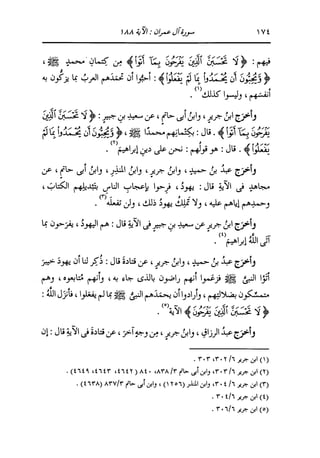 ١٧٤ سورة آل عمران : الآية ١٨٨
فيهم : ﴿ لَا تَحْسَبَنَّ ٱلَّذِينَ يَفْرَحُونَ بِمَآ أَتَوا۟ ﴾ مِن كِتمانِ محمدٍ ﷺ ،
﴿ وَّيُحِبُّونَ أَن يُحْمَدُوا۟ بِمَا لَمْ يَفْعَلُوا۟ ﴾ : أحبُّوا أن تحمَدَهم العربُ بما يزكُّون به
أنفسَهم ، وليسوا كذلك(١) .
وأخرَج ابنُ جريرٍ ، وابنُ أبى حاتمٍ ، عن سعيدِ بنِ جبيرٍ : ﴿ لَا تَحْسَبَنَّ ٱلَّذِينَ
يَفْرَحُونَ بِمَآ أَتَوا۟ ﴾ . قال : بكتمانِهم محمدًا ﷺ ، ﴿ وَّيُحِبُّونَ أَن يُحْمَدُوا۟ بِمَا لَمْ
يَفْعَلُوا۟ ﴾ . قال : هو قولُهم : نحن على دينِ إبراهيمَ(٢) .
وأخرَج عبدُ بنُ حميدٍ ، وابنُ جريرٍ ، وابنُ المنذرِ ، وابنُ أبى حاتمٍ ، عن
مجاهدٍ فى الآيةِ قال : يهودُ ، فرِحوا بإعجابِ الناسِ بتبديلِهم الكتابَ ،
وحمدِهم إياهم عليه ، ولا تملِكُ يهودُ ذلك ، ولن تفعلَه(٣) .
وأخرَج ابنُ جريرٍ عن سعيدِ بنِ جبيرٍ فى الآيةِ قال : هم اليهودُ ، يفرَحون بما
آتَى اللَّهُ إبراهيمَ(٤) .
وأخرَج عبدُ بنُ حميدٍ ، وابنُ جريرٍ ، عن قتادةَ قال : ذُكِر لنا أن يهودَ خيبرَ
أتَوُا النبيَّ ﷺ فزعَموا أنهم راضون بالذى جاء به ، وأنهم مُتابعوه ، وهم
متمسِّكون بضلالتِهم ، وأرادوا أن يحمَدَهم النبيُّ ﷺ بما لم يفعَلوا ، فأنزَل اللَّهُ :
﴿ لَا تَحْسَبَنَّ ٱلَّذِينَ يَفْرَحُونَ ﴾ الآية(٥) .
وأخرَج عبدُ الرزاقِ ، وابنُ جريرٍ ، مِن وجهٍ آخرَ ، عن قتادةَ فى الآيةِ قال : إن
(١) ابن جرير ٦/ ٣٠٢، ٣٠٣ .
(٢) ابن جرير ٦/ ٣٠٣، وابن أبى حاتم ٣/ ٨٣٨، ٨٤٠ (٤٦٤٢، ٤٦٤٣، ٤٦٤٩) .
(٣) ابن جرير ٦/ ٣٠٤، وابن المنذر (١٢٥٦) ، وابن أبى حاتم ٣/ ٨٣٧ (٤٦٣٨) .
(٤) ابن جرير ٦/ ٣٠٤ .
(٥) ابن جرير ٦/ ٣٠٦ .